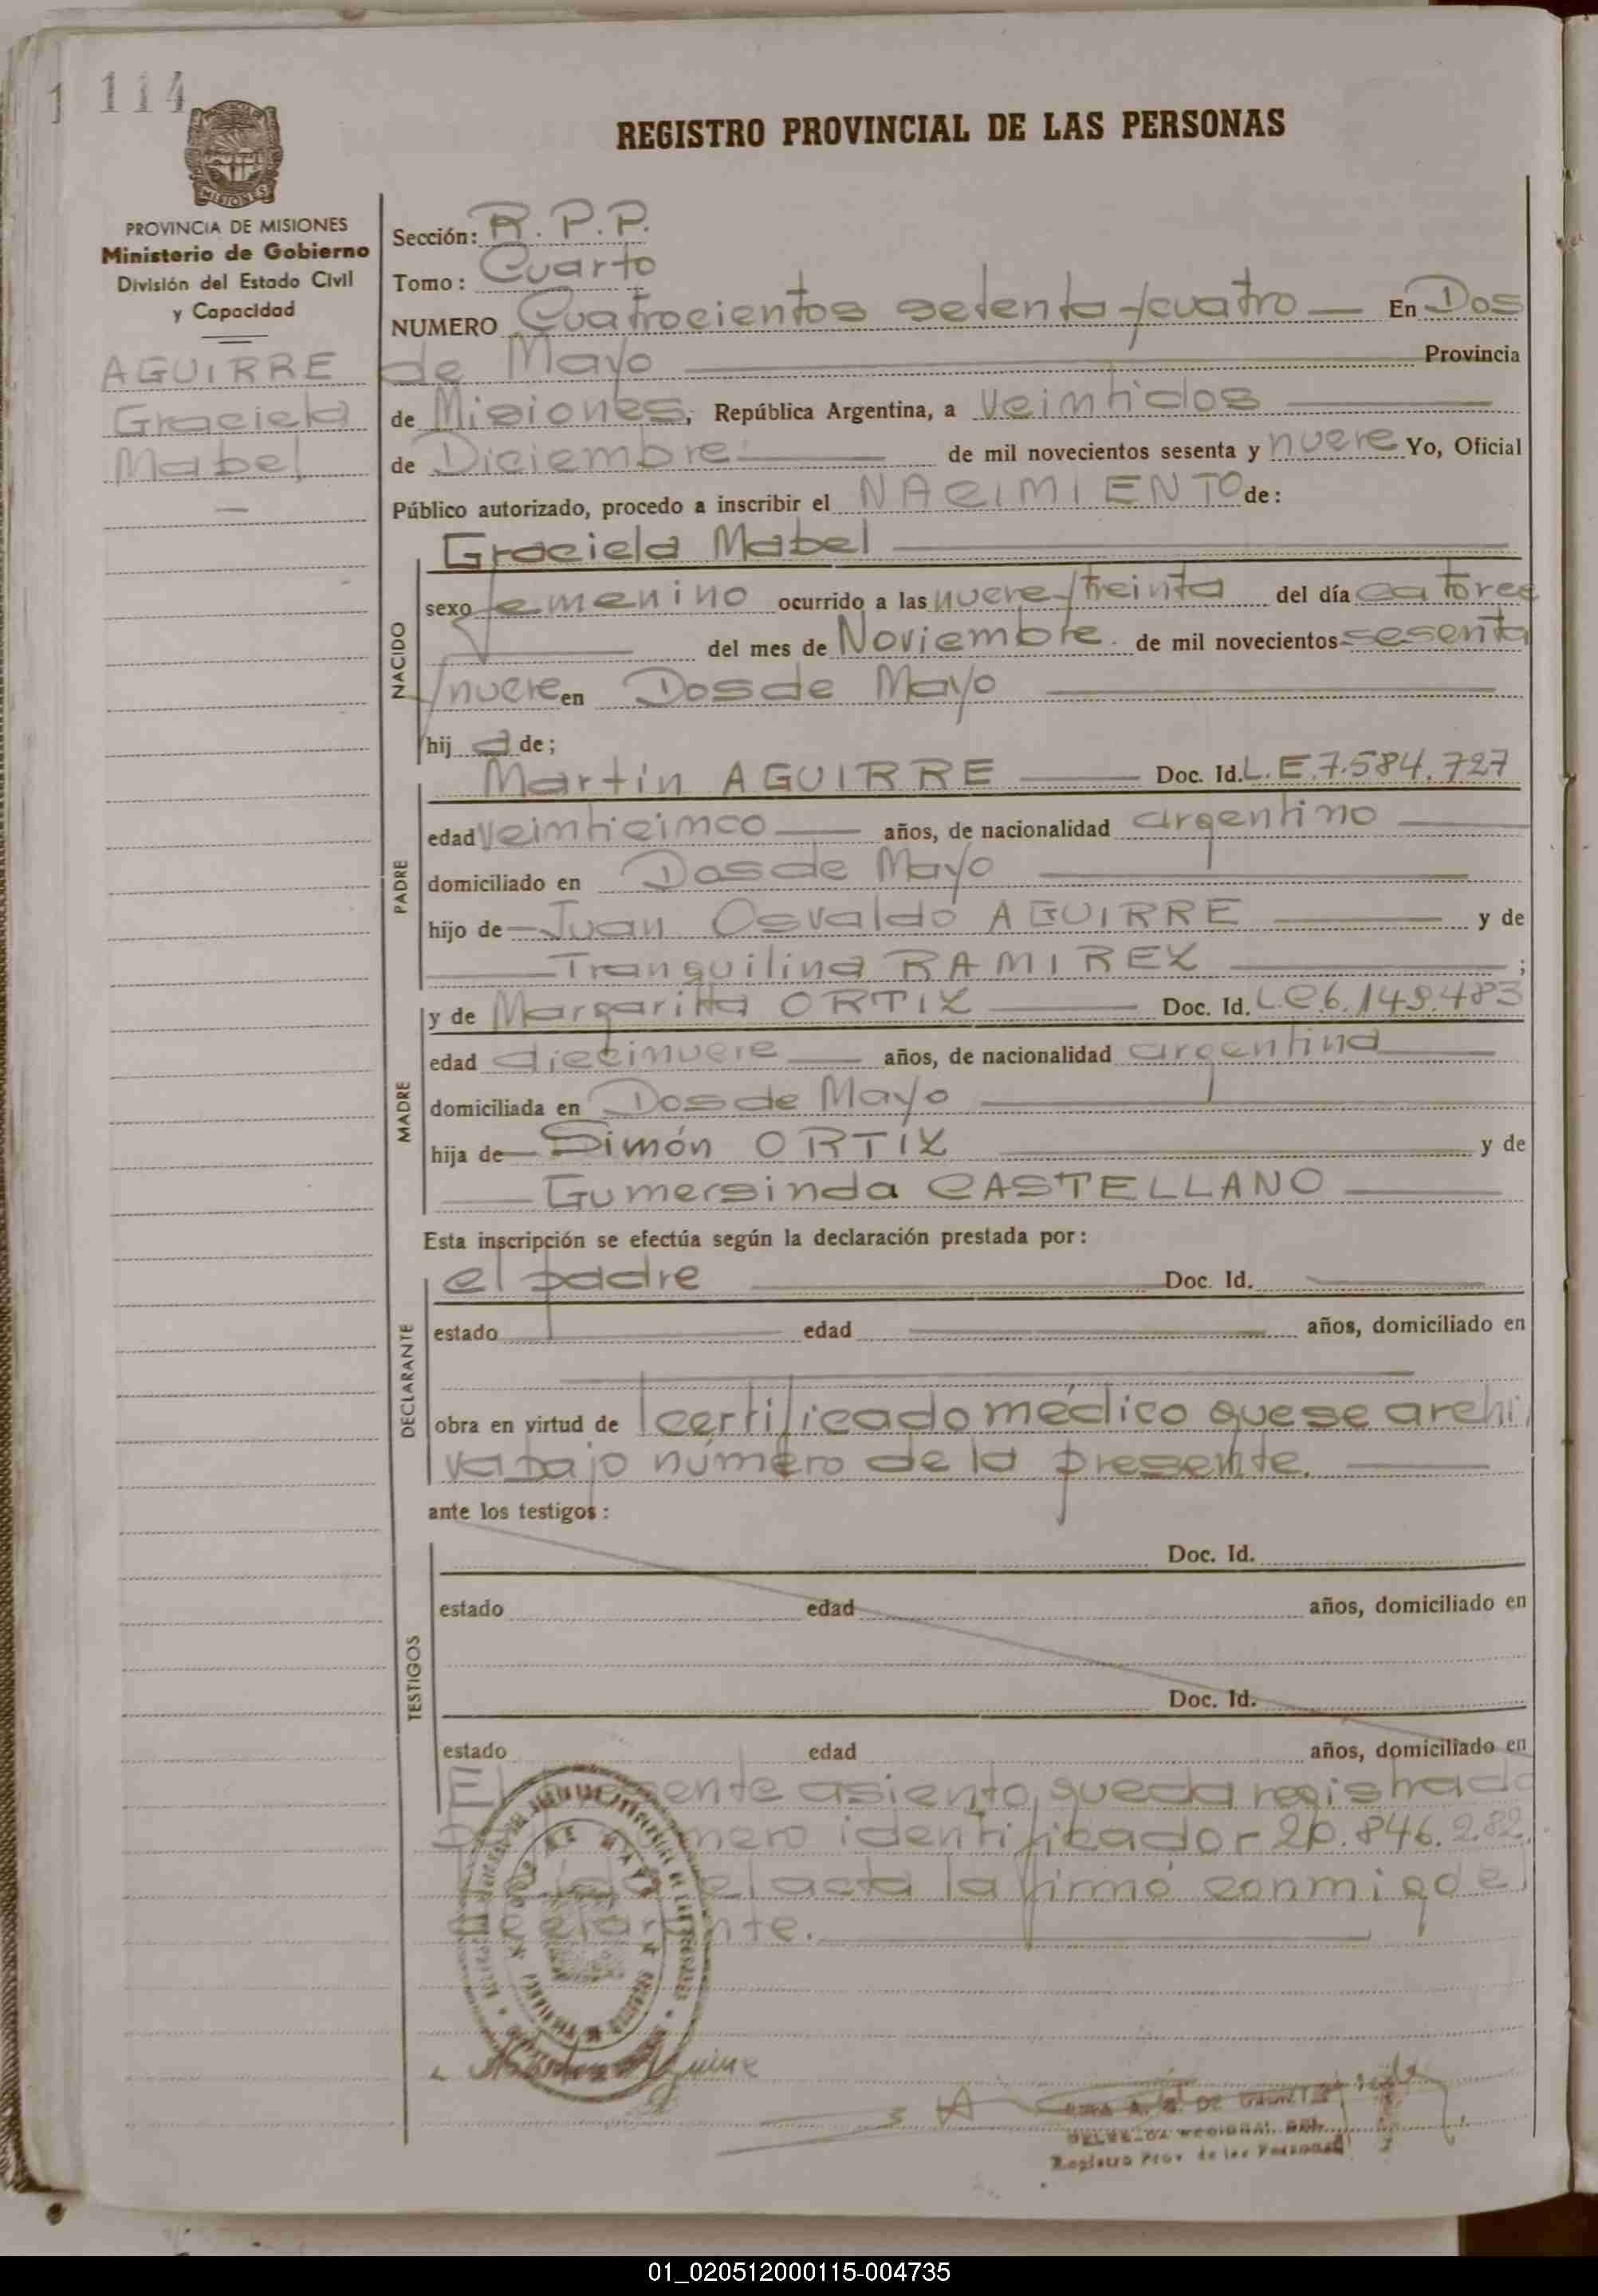 114
REGISTRO PROVINCIAL DE LAS PERSONAS
MISIONES
PROVINCIA DE MISIONES
Ministerio de Gobierno
División del Estado Civil
y Capacidad
AGUIRRE
Graciela
Mabel
Sección: R.P.P.
Tomo: Cuarto
NUMERO Cuatrocientos setenta y cuatro En Dos
de Mayo Provincia
de Misiones, República Argentina, a Veintidos
de Diciembre de mil novecientos sesenta y nueve Yo, Oficial
Público autorizado, procedo a inscribir el NACIMIENTO de:
NACIDO
Graciela Mabel
sexo femenino ocurrido a las nueve y treinta del día catorce
del mes de Noviembre de mil novecientos sesenta
y nueve en Dos de Mayo
hij a de;
PADRE
Martín AGUIRRE Doc. Id. L.E.7.584.727
edad veinticinco años, de nacionalidad argentino
domiciliado en Dos de Mayo
hijo de Juan Osvaldo AGUIRRE y de
Tranquilina RAMIREZ ;
MADRE
y de Margarita ORTIZ Doc. Id. L.C.6.149.483
edad diecinueve años, de nacionalidad argentina
domiciliada en Dos de Mayo
hija de Simón ORTÍZ y de
Gumersinda CASTELLANO
Esta inscripción se efectúa según la declaración prestada por:
DECLARANTE
el padre Doc. Id.
estado edad años, domiciliado en
obra en virtud de certificado médico que se archi
va bajo número de la presente.
ante los testigos:
TESTIGOS
Doc. Id.
estado edad años, domiciliado en
Doc. Id.
estado edad años, domiciliado en
El presente asiento queda registrado
número identificador 20.846.282.
el acta la firmó conmigo el
declarante.
Registro Prov. de las Personas
01_020512000115-004735